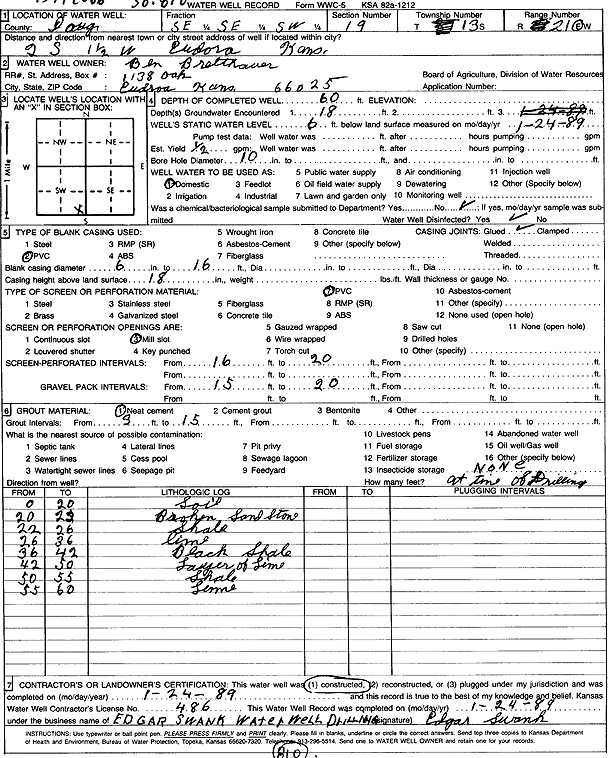 WATER WELL RECORD Form WWC-5 KSA 82a-1212
1 LOCATION OF WATER WELL: Fraction Section Number Township Number Range Number
County: Doug SE ¼ SE ¼ SW ¼ 19 T 13 S R 21 E/W
Distance and direction from nearest town or city street address of well if located within city?
2 S 1½ W Eudora Kans.
2 WATER WELL OWNER: Ben Bretthauer
RR#, St. Address, Box # : 1138 Oak Board of Agriculture, Division of Water Resources
City, State, ZIP Code : Eudora Kans. 66025 Application Number:
3 LOCATE WELL'S LOCATION WITH AN "X" IN SECTION BOX:
N
NW NE
W E
SW SE
X
S
1 Mile
4 DEPTH OF COMPLETED WELL 60 ft. ELEVATION:
Depth(s) Groundwater Encountered 1 18 ft. 2 ft. 3 1-24-89
WELL'S STATIC WATER LEVEL 6 ft. below land surface measured on mo/day/yr 1-24-89
Pump test data: Well water was ft. after hours pumping gpm
Est. Yield ½ gpm: Well water was ft. after hours pumping gpm
Bore Hole Diameter 10 in. to ft., and in. to ft.
WELL WATER TO BE USED AS: 5 Public water supply 8 Air conditioning 11 Injection well
1 Domestic 3 Feedlot 6 Oil field water supply 9 Dewatering 12 Other (Specify below)
2 Irrigation 4 Industrial 7 Lawn and garden only 10 Monitoring well
Was a chemical/bacteriological sample submitted to Department? Yes No ✓; If yes, mo/day/yr sample was submitted Water Well Disinfected? Yes ✓ No
5 TYPE OF BLANK CASING USED: 5 Wrought iron 8 Concrete tile CASING JOINTS: Glued ✓ Clamped
1 Steel 3 RMP (SR) 6 Asbestos-Cement 9 Other (specify below) Welded
2 PVC 4 ABS 7 Fiberglass Threaded
Blank casing diameter 6 in. to 16 ft., Dia in. to ft., Dia in. to ft.
Casing height above land surface 18 in., weight lbs./ft. Wall thickness or gauge No.
TYPE OF SCREEN OR PERFORATION MATERIAL: 7 PVC 10 Asbestos-cement
1 Steel 3 Stainless steel 5 Fiberglass 8 RMP (SR) 11 Other (specify)
2 Brass 4 Galvanized steel 6 Concrete tile 9 ABS 12 None used (open hole)
SCREEN OR PERFORATION OPENINGS ARE: 5 Gauzed wrapped 8 Saw cut 11 None (open hole)
1 Continuous slot 3 Mill slot 6 Wire wrapped 9 Drilled holes
2 Louvered shutter 4 Key punched 7 Torch cut 10 Other (specify)
SCREEN-PERFORATED INTERVALS: From 16 ft. to 20 ft., From
From ft. to ft., From
GRAVEL PACK INTERVALS: From 15 ft. to 20 ft., From
From ft. to ft., From
6 GROUT MATERIAL: 1 Neat cement 2 Cement grout 3 Bentonite 4 Other
Grout Intervals: From 3 ft. to 15 ft., From ft. to ft., From ft. to ft.
What is the nearest source of possible contamination: 10 Livestock pens 14 Abandoned water well
1 Septic tank 4 Lateral lines 7 Pit privy 11 Fuel storage 15 Oil well/Gas well
2 Sewer lines 5 Cess pool 8 Sewage lagoon 12 Fertilizer storage 16 Other (specify below)
3 Watertight sewer lines 6 Seepage pit 9 Feedyard 13 Insecticide storage NONE
Direction from well? How many feet? at time of Drilling
FROM TO LITHOLOGIC LOG FROM TO PLUGGING INTERVALS
0 20 Soil
20 22 Broken Sand Stone
22 26 Shale
26 36 Lime
36 42 Black Shale
42 50 Layer of Lime
50 55 Shale
55 60 Lime
7 CONTRACTOR'S OR LANDOWNER'S CERTIFICATION: This water well was (1) constructed, (2) reconstructed, or (3) plugged under my jurisdiction and was
completed on (mo/day/year) 1-24-89 and this record is true to the best of my knowledge and belief. Kansas
Water Well Contractor's License No. 486 This Water Well Record was completed on (mo/day/yr) 1-24-89
under the business name of EDGAR SWANK WATER WELL DRILLING (signature) Edgar Swank
INSTRUCTIONS: Use typewriter or ball point pen. PLEASE PRESS FIRMLY and PRINT clearly. Please fill in blanks, underline or circle the correct answers. Send top three copies to Kansas Department
of Health and Environment, Bureau of Water Protection, Topeka, Kansas 66620-7320. Telephone: 913-296-5514. Send one to WATER WELL OWNER and retain one for your records.